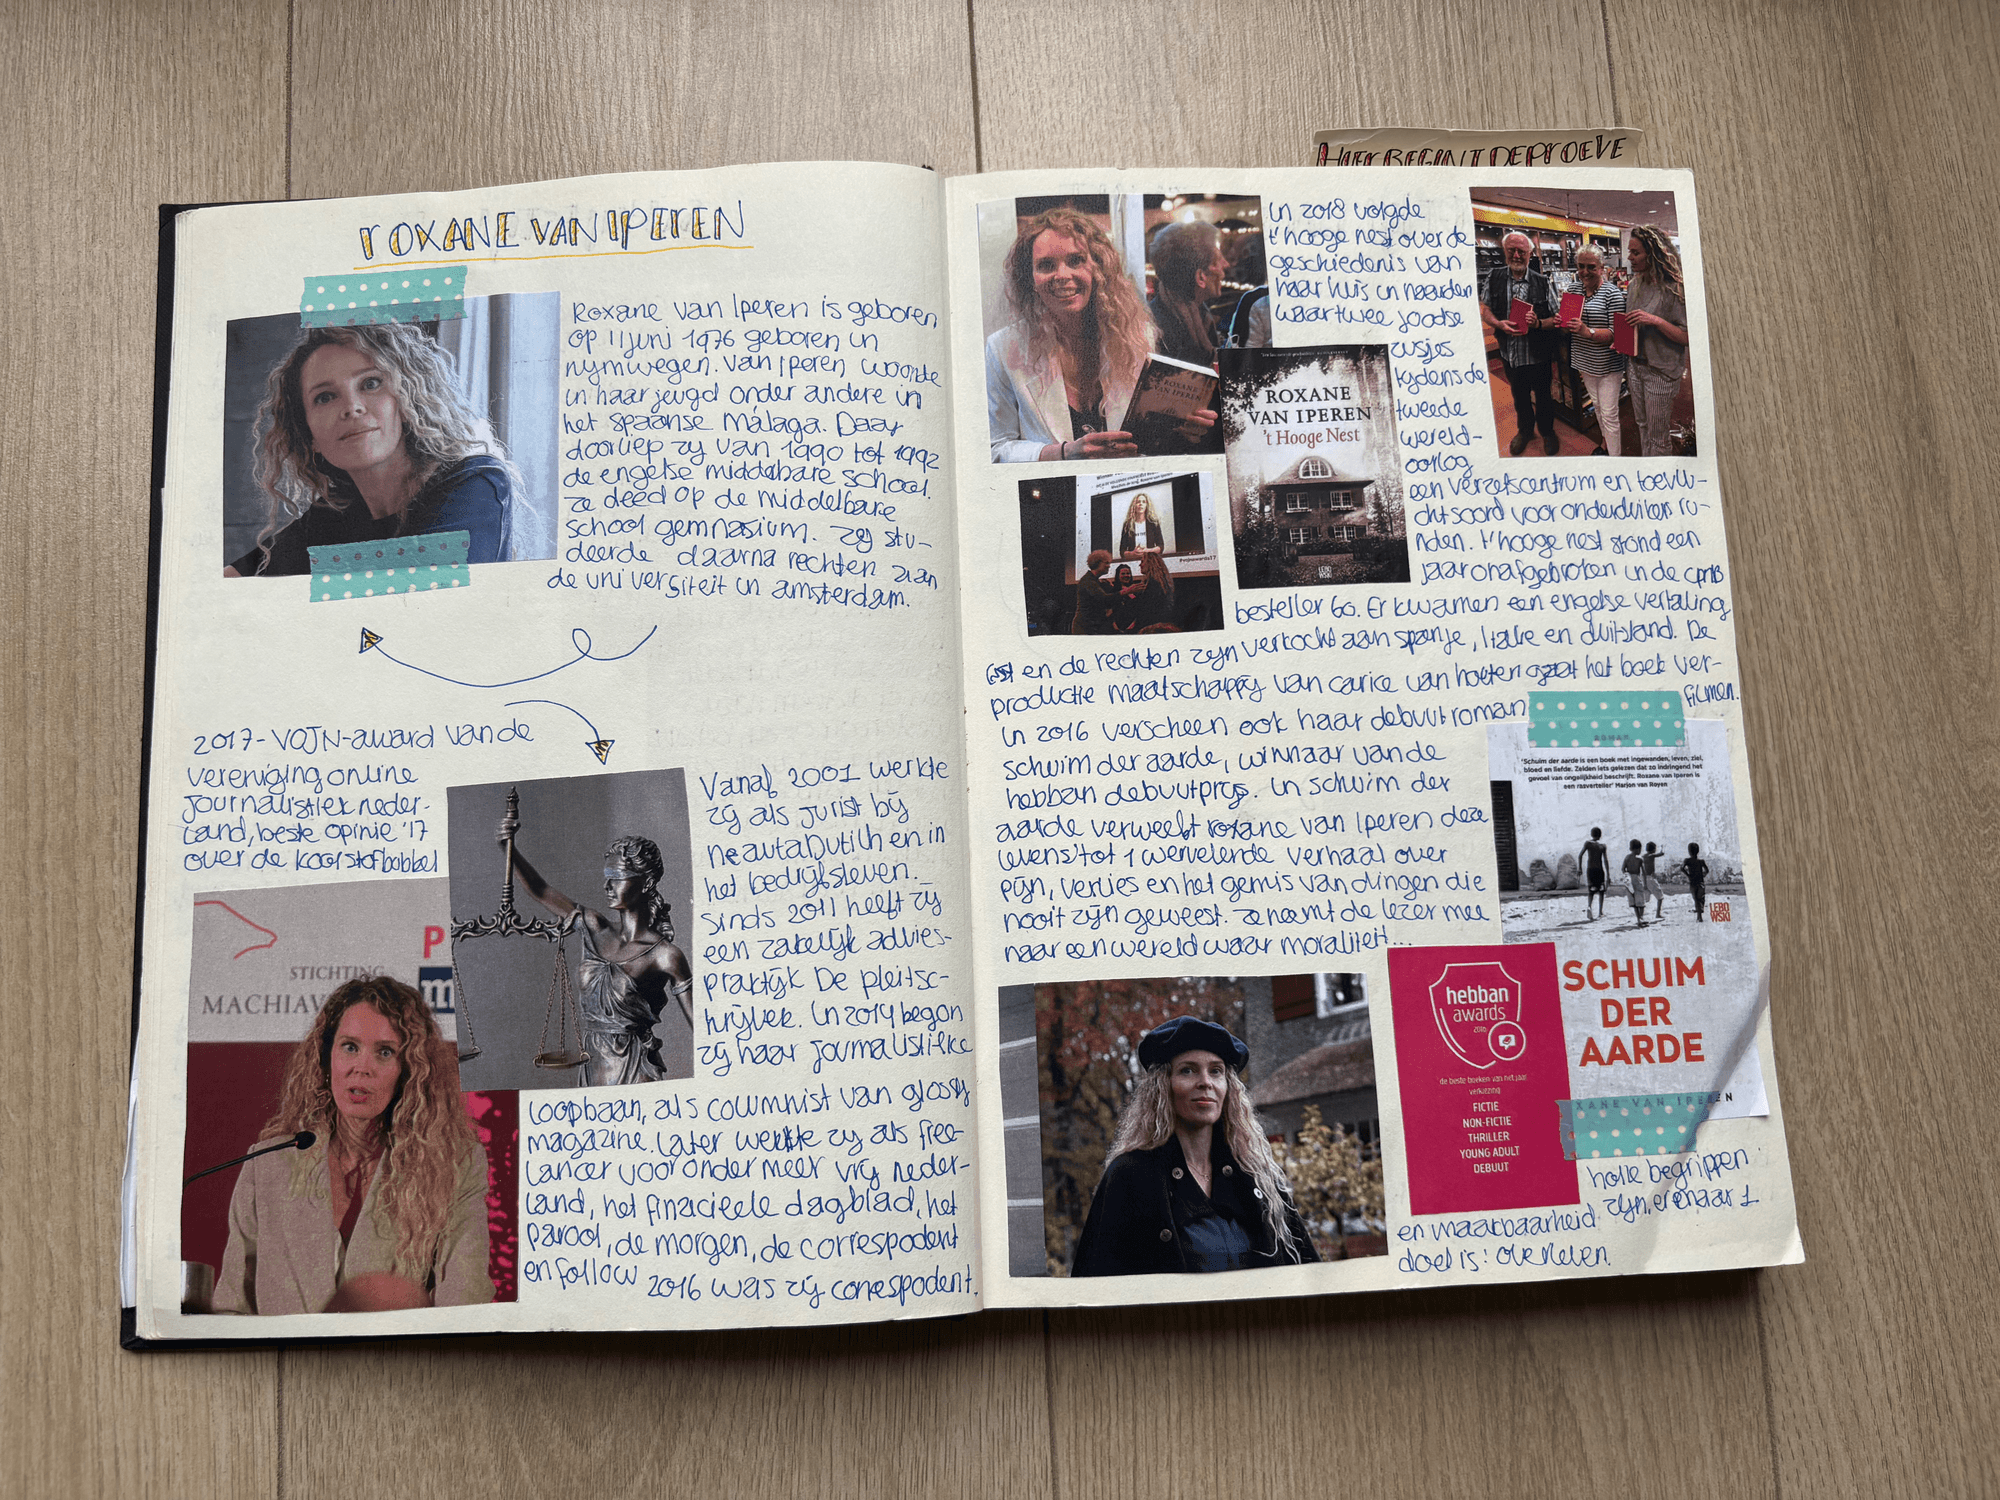 HIER BEGINT DE PROEVE
ROXANE VAN IPEREN
Roxane van Iperen is geboren
op 11 juni 1976 geboren in
nymwegen. Van Iperen woonde
in haar jeugd onder andere in
het spaanse Málaga. Daar
doorliep zy van 1990 tot 1992
de engelse middelbare school.
ze deed op de middelbare
school gemnasium. Zy stu-
deerde daarna rechten aan
de universiteit in amsterdam.
2017-VOJN-award van de
vereniging online
journalistiek neder-
land, beste opinie '17
over de koolstofbubbel
Vanaf 2001 werkte
zij als jurist bij
NeautaDutilh en in
het bedrijfsleven.
Sinds 2011 heeft zy
een zakelijk advies-
praktijk De pleitsc-
hrijver. In 2014 begon
zij haar journalistieke
loopbaan, als columnist van glossy
magazine. Later werkte zy als free-
lancer voor onder meer vrij neder-
land, het finacieele dagblad, het
parool, de morgen, de correspodent
en follow 2016 was zij correspodent.
STICHTING
MACHIAV
P
m
In 2018 volgde
t'hooge nest over de
geschiedenis van
haar huis in naarden
waar twee joodse
zusjes
tydens de
tweede
wereld-
oorlog
een verzetscentrum en toevlu-
chtsoord voor onderduikers ru-
nden. t'hooge nest stond een
jaar onafgebroken in de cpnb
besteller 60. Er kwamen een engelse vertaling
en de rechten zijn verkocht aan spanje, Italie en duitsland. De
productie maatschappij van carice van houten gaat het boek ver-
filmen.
ROXANE
VAN IPEREN
ROXANE
VAN IPEREN
't Hooge Nest
LEBO
WSKI
In 2016 verscheen ook haar debuutroman
schuim der aarde, winnaar van de
hebban debuutprijs. In schuim der
aarde verweeft roxane van Iperen deze
levens tot 1 wervelende verhaal over
pijn, verlies en het gemis van dingen die
nooit zijn geweest. ze neemt de lezer mee
naar een wereld waar moraliteit...
ROMAN
'Schuim der aarde is een boek met ingewanden, leven, ziel,
bloed en liefde. Zelden iets gelezen dat zo indringend het
gevoel van ongelijkheid beschrijft. Roxane van Iperen is
een rasverteller' Marjon van Royen
LEBO
WSKI
SCHUIM
DER
AARDE
XANE VAN IPEREN
hebban
awards
2016
de beste boeken van het jaar
verkiezing
FICTIE
NON-FICTIE
THRILLER
YOUNG ADULT
DEBUUT
holle begrippen
en maakbaarheid zijn, er enaar 1
doel is: overleven.